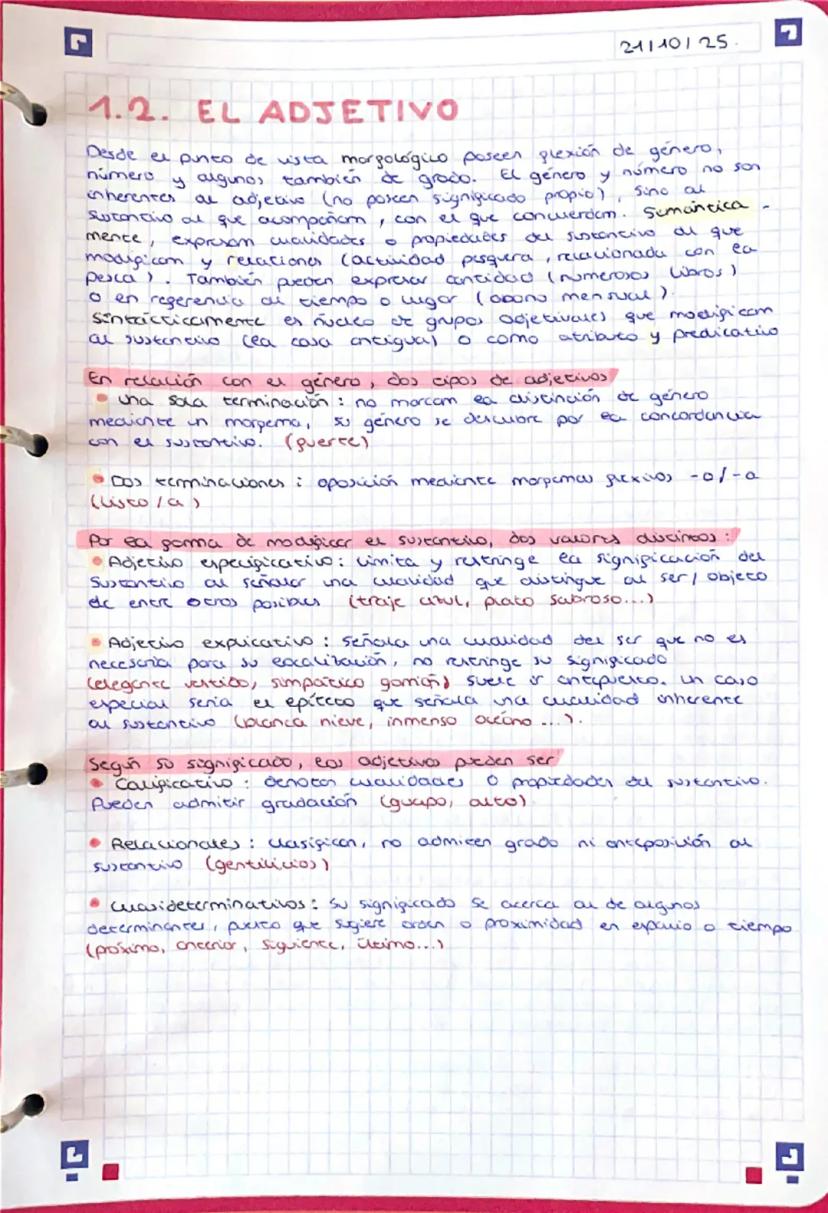 21/10/25.
1.2. EL ADJETIVO
Desde el punto de vista morfológico poseen flexión de género,
número y algunos también de grado. El género y número no son
inherentes al adjetivo (no poseen significado propio), sino al
sustantivo al que acompañan, con el que concuerdan. Semántica-
mente, expresan cualidades o propiedades del sustantivo al que
modifican y relaciones (actividad pesquera, relacionada con la
pesca). También pueden expresar cantidad (numerosos libros)
o en referencia al tiempo o lugar (abono mensual).
Sintácticamente es núcleo de grupos adjetivales que modifican
al sustantivo (la casa antigua) o como atributo y predicativo
En relación con el género, dos tipos de adjetivos
• Una sola terminación: no marcan la distinción de género
mediante un morfema, su género se descubre por la concordancia
con el sustantivo. (fuerte)
• Dos terminaciones: oposición mediante morfemas flexivos -o/-a
(listo/a)
Por la forma de modificar el sustantivo, dos valores distintos:
• Adjetivo especificativo: limita y restringe la significación del
sustantivo al señalar una cualidad que distingue al ser/objeto
de entre otros posibles (traje azul, plato sabroso...)
• Adjetivo explicativo: señala una cualidad del ser que no es
necesaria para su localización, no restringe su significado
(elegante vestido, simpático gorrión) suele ir antepuesto. Un caso
especial sería el epíteto que señala una cualidad inherente
al sustantivo (blanca nieve, inmenso océano...).
Según su significado, los adjetivos pueden ser
• Calificativo: denotan cualidades o propiedades del sustantivo.
Pueden admitir gradación (guapo, alto)
• Relacionales: clasifican, no admiten grado ni anteposición al
sustantivo (gentilicios)
• Cuasideterminativos: su significado se acerca al de algunos
determinantes, puesto que sugiere orden o proximidad en espacio o tiempo
(próximo, anterior, siguiente, último...)